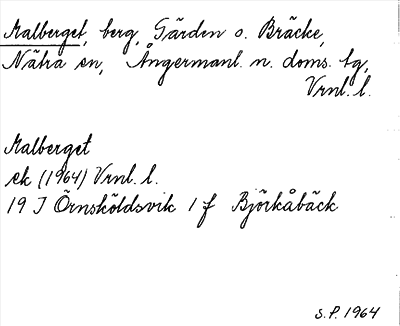 Malberget, berg, Gärden o. Bräcke,
Nätra sn, Ångermanl. n. doms. tg,
Vrnl. l.
Malberget
ek (1964) Vrnl. l.
19 J Örnsköldsvik 1 f Björkåbäck
S.P. 1964